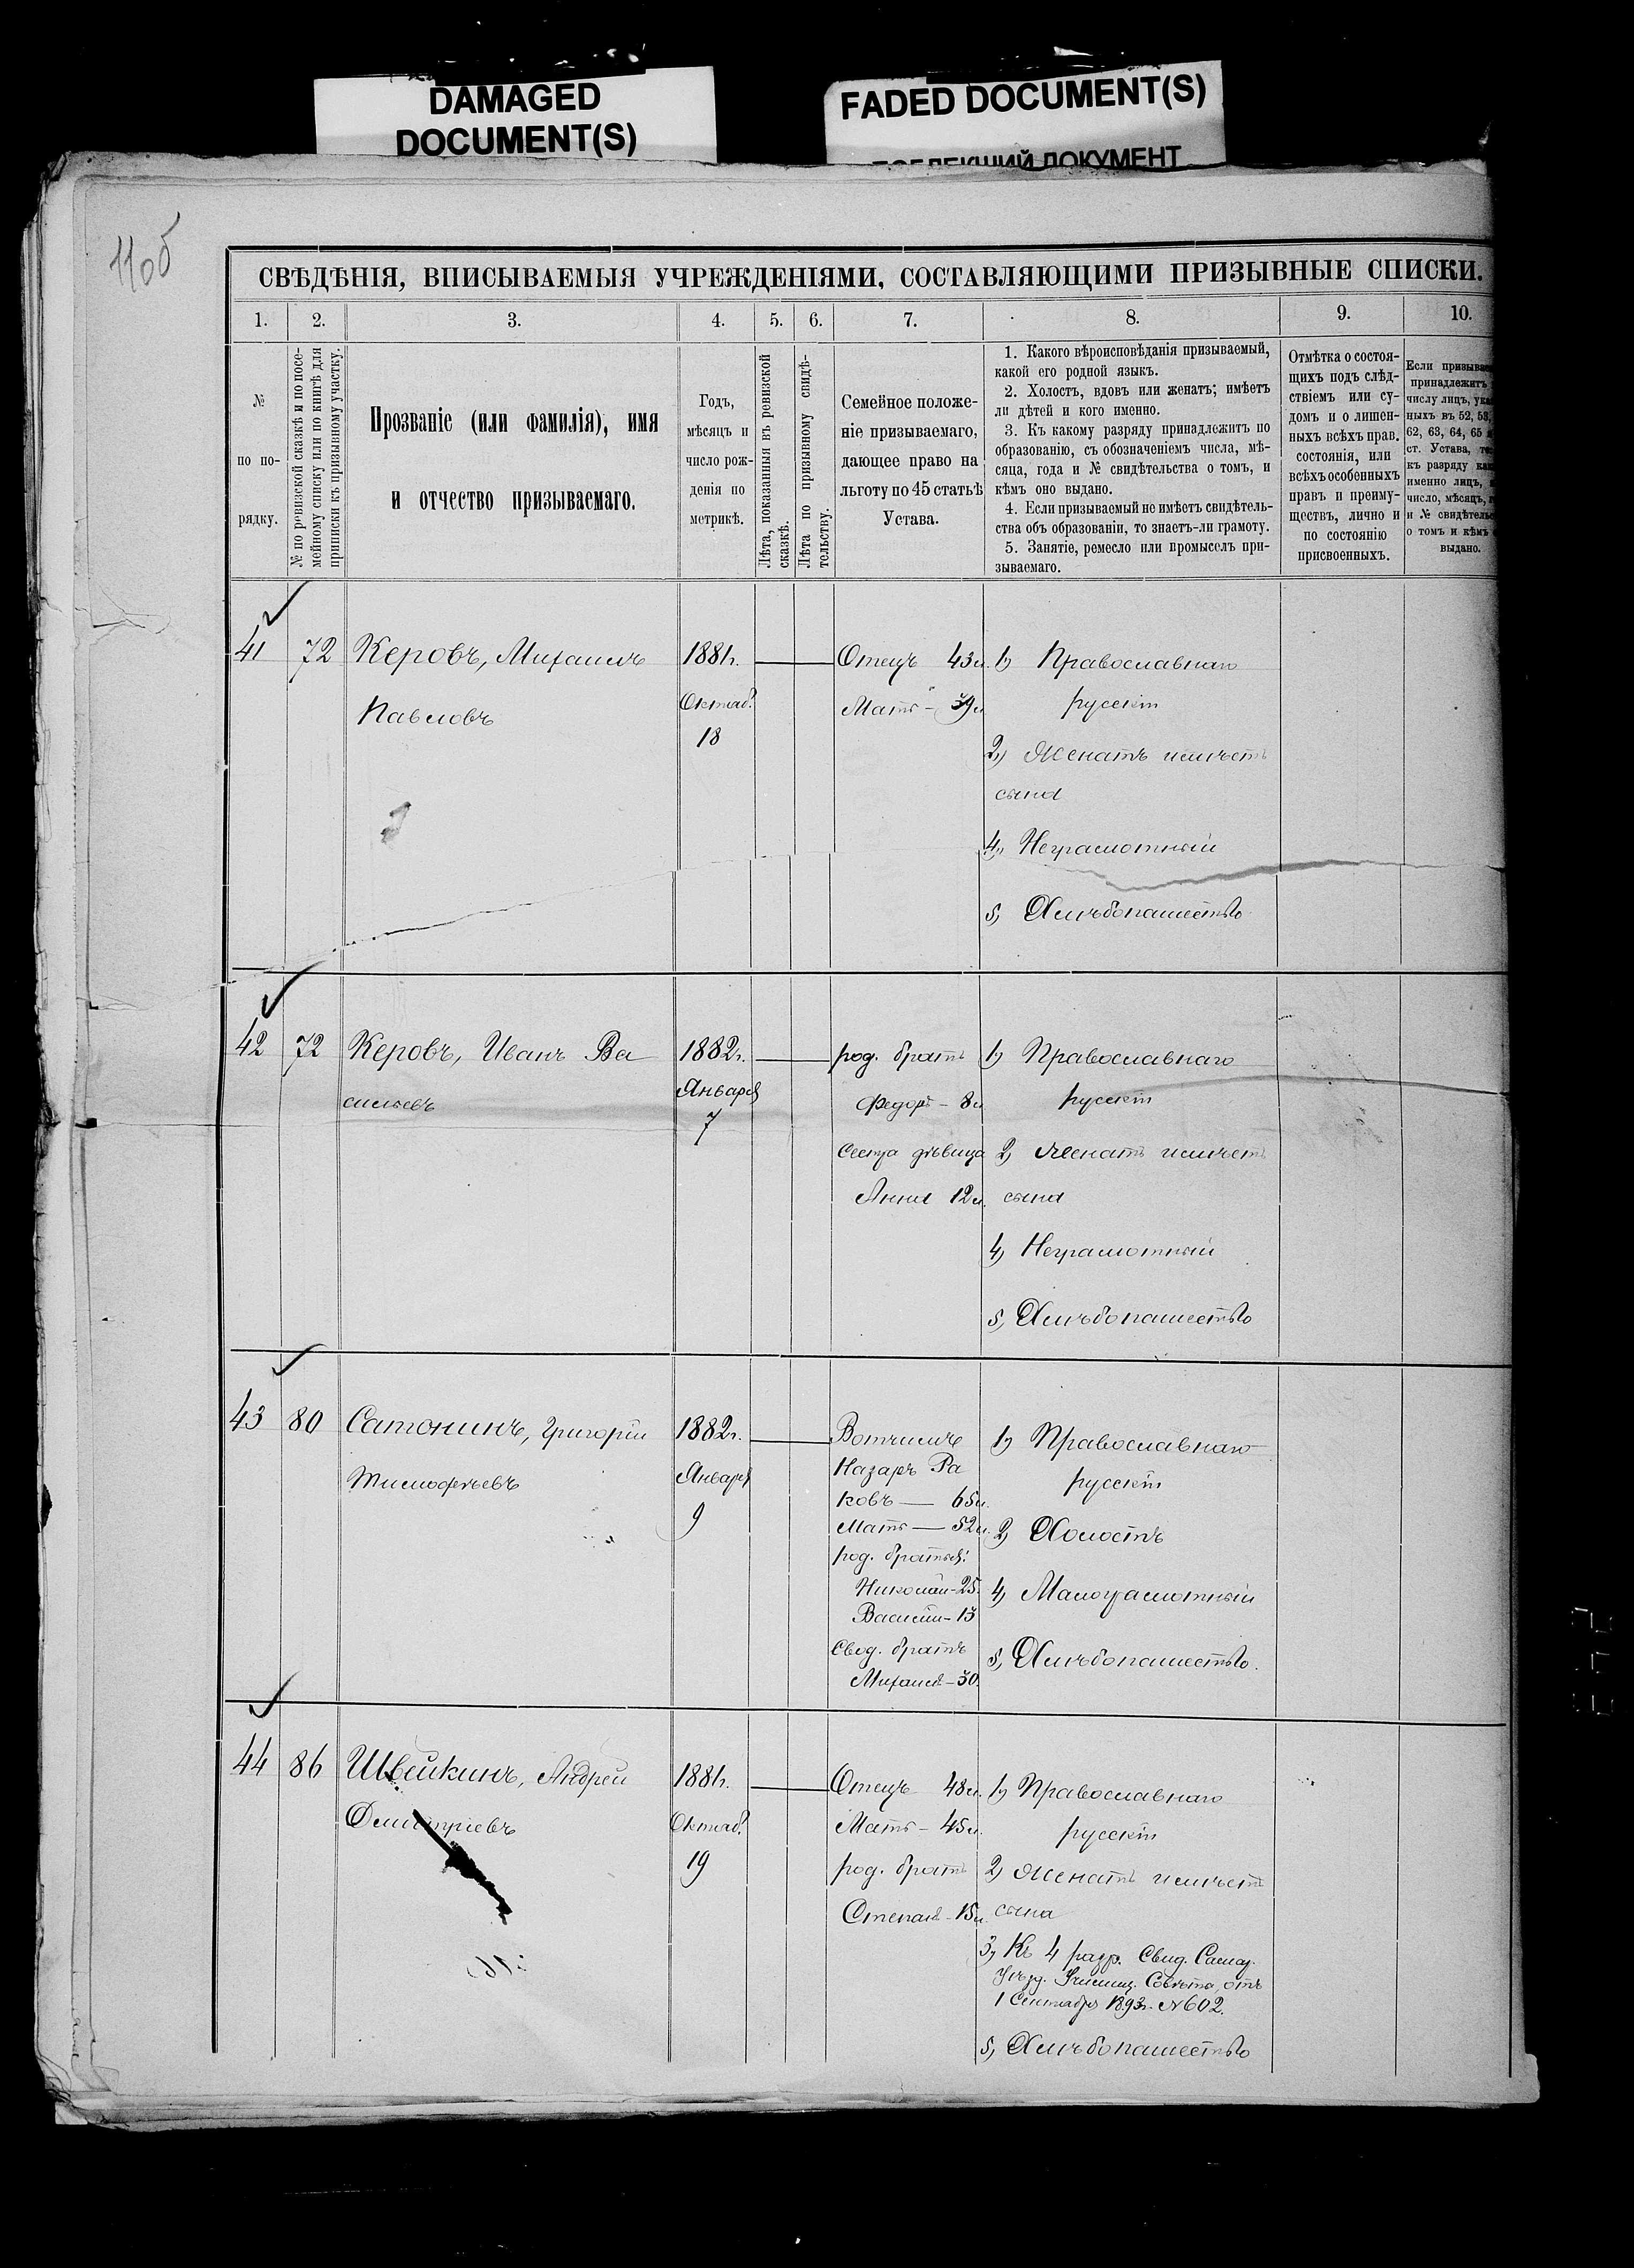 DAMAGED
DOCUMENT(S)
FADED DOCUMENT(S)
ПОБЛЕКШИЙ ДОКУМЕНТ
110б
СВѢДѢНІЯ, ВПИСЫВАЕМЫЯ УЧРЕЖДЕНІЯМИ, СОСТАВЛЯЮЩИМИ ПРИЗЫВНЫЕ СПИСКИ.
1. 2. 3. 4. 5. 6. 7. 8. 9. 10.
№
по по-
рядку.
№ по ревизской сказкѣ и по посе-
мейному списку или по книгѣ для
приписки къ призывному участку.
Прозваніе (или фамилія), имя
и отчество призываемаго.
Годъ,
мѣсяцъ и
число рож-
денія по
метрикѣ.
Лѣта, показанныя въ ревизской
сказкѣ.
Лѣта по призывному свидѣ-
тельству.
Семейное положе-
ніе призываемаго,
дающее право на
льготу по 45 статьѣ
Устава.
1. Какого вѣроисповѣданія призываемый,
какой его родной языкъ.
2. Холостъ, вдовъ или женатъ; имѣетъ
ли дѣтей и кого именно.
3. Къ какому разряду принадлежитъ по
образованію, съ обозначеніемъ числа, мѣ-
сяца, года и № свидѣтельства о томъ, и
кѣмъ оно выдано.
4. Если призываемый не имѣетъ свидѣтель-
ства объ образованіи, то знаетъ-ли грамоту.
5. Занятіе, ремесло или промыселъ при-
зываемаго.
Отмѣтка о состоя-
щихъ подъ слѣд-
ствіемъ или су-
домъ и о лишен-
ныхъ всѣхъ прав.
состоянія, или
всѣхъ особенныхъ
правъ и преиму-
ществъ, лично и
по состоянію
присвоенныхъ.
Если призывае
принадлежитъ
числу лицъ, ука
ныхъ въ 52, 53,
62, 63, 64, 65
ст. Устава, то
къ разряду как
именно лицъ,
число, мѣсяцъ,
и № свидѣтельс
о томъ и кѣмъ
выдано.
41 72 Керовъ, Михаилъ
Павловъ
1881г.
Октяб.
18
Отецъ 43л.
Мать - 39л
1) Православнаго
русскій
2) Женатъ имѣетъ
сына
4) Неграмотный
5) Хлѣбопашество
42 72 Керовъ, Иванъ Ва
сильевъ
1882г.
Января
7
род. братъ
Федоръ - 8л
Сестра дѣвица
Анна 12л.
1) Православнаго
русскій
2) Женатъ имѣетъ
сына
4) Неграмотный
5) Хлѣбопашество
43 80 Сатонинъ, Григорій
Тимофѣевъ
1882г.
Января
9
Вотчимъ
Назаръ Ра
ковъ — 65л.
Мать — 52л.
род. братья:
Николай - 25.
Василій - 13
Свод. братъ
Михаилъ - 30.
1) Православнаго
русскій
2) Холостъ
4) Малограмотный
5) Хлѣбопашество.
44 86 Швейкинъ, Андрей
Дмитріевъ
1881г.
Октяб.
19
Отецъ 48л.
Мать - 45л.
род. братъ
Степанъ - 15л.
1) Православнаго
русскій
2) Женатъ имѣетъ
сына
3) Къ 4 разр. Свид.
Уѣзд. Училищ. Совѣта, отъ
1 Сентября 1893г. № 602.
5) Хлѣбопашество